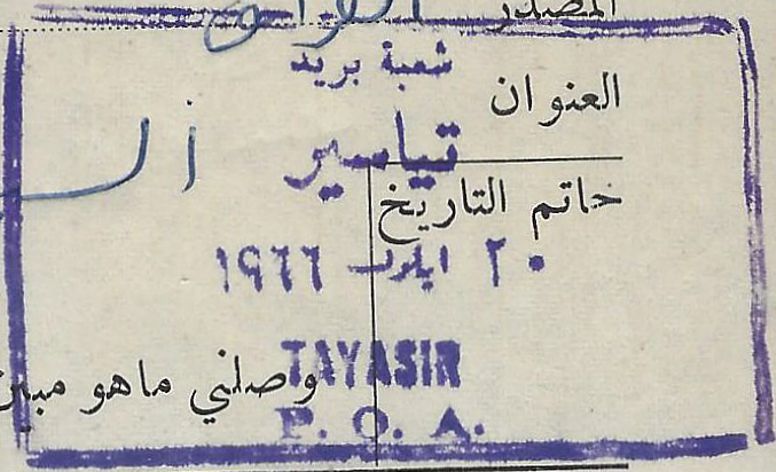 المصدر
شعبة بريد
العنوان
تياسير
خاتم التاريخ
٢٠ ايلول ١٩٦٦
TAYASIR
وصلني ماهو مبين
P. O. A.